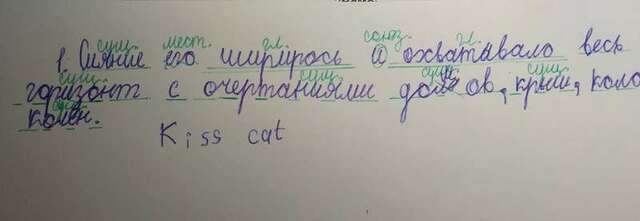 сущ. мест. гл. союз. гл.
1. Сияние его ширилось и охватывало весь
сущ. сущ. сущ. сущ.
горизонт с очертаниями домов, крыш, коло
колен.
Kiss cat